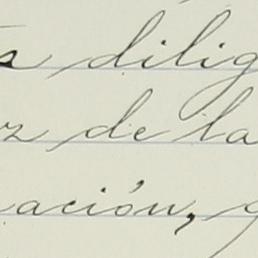 s dilig
z de la
ación, q